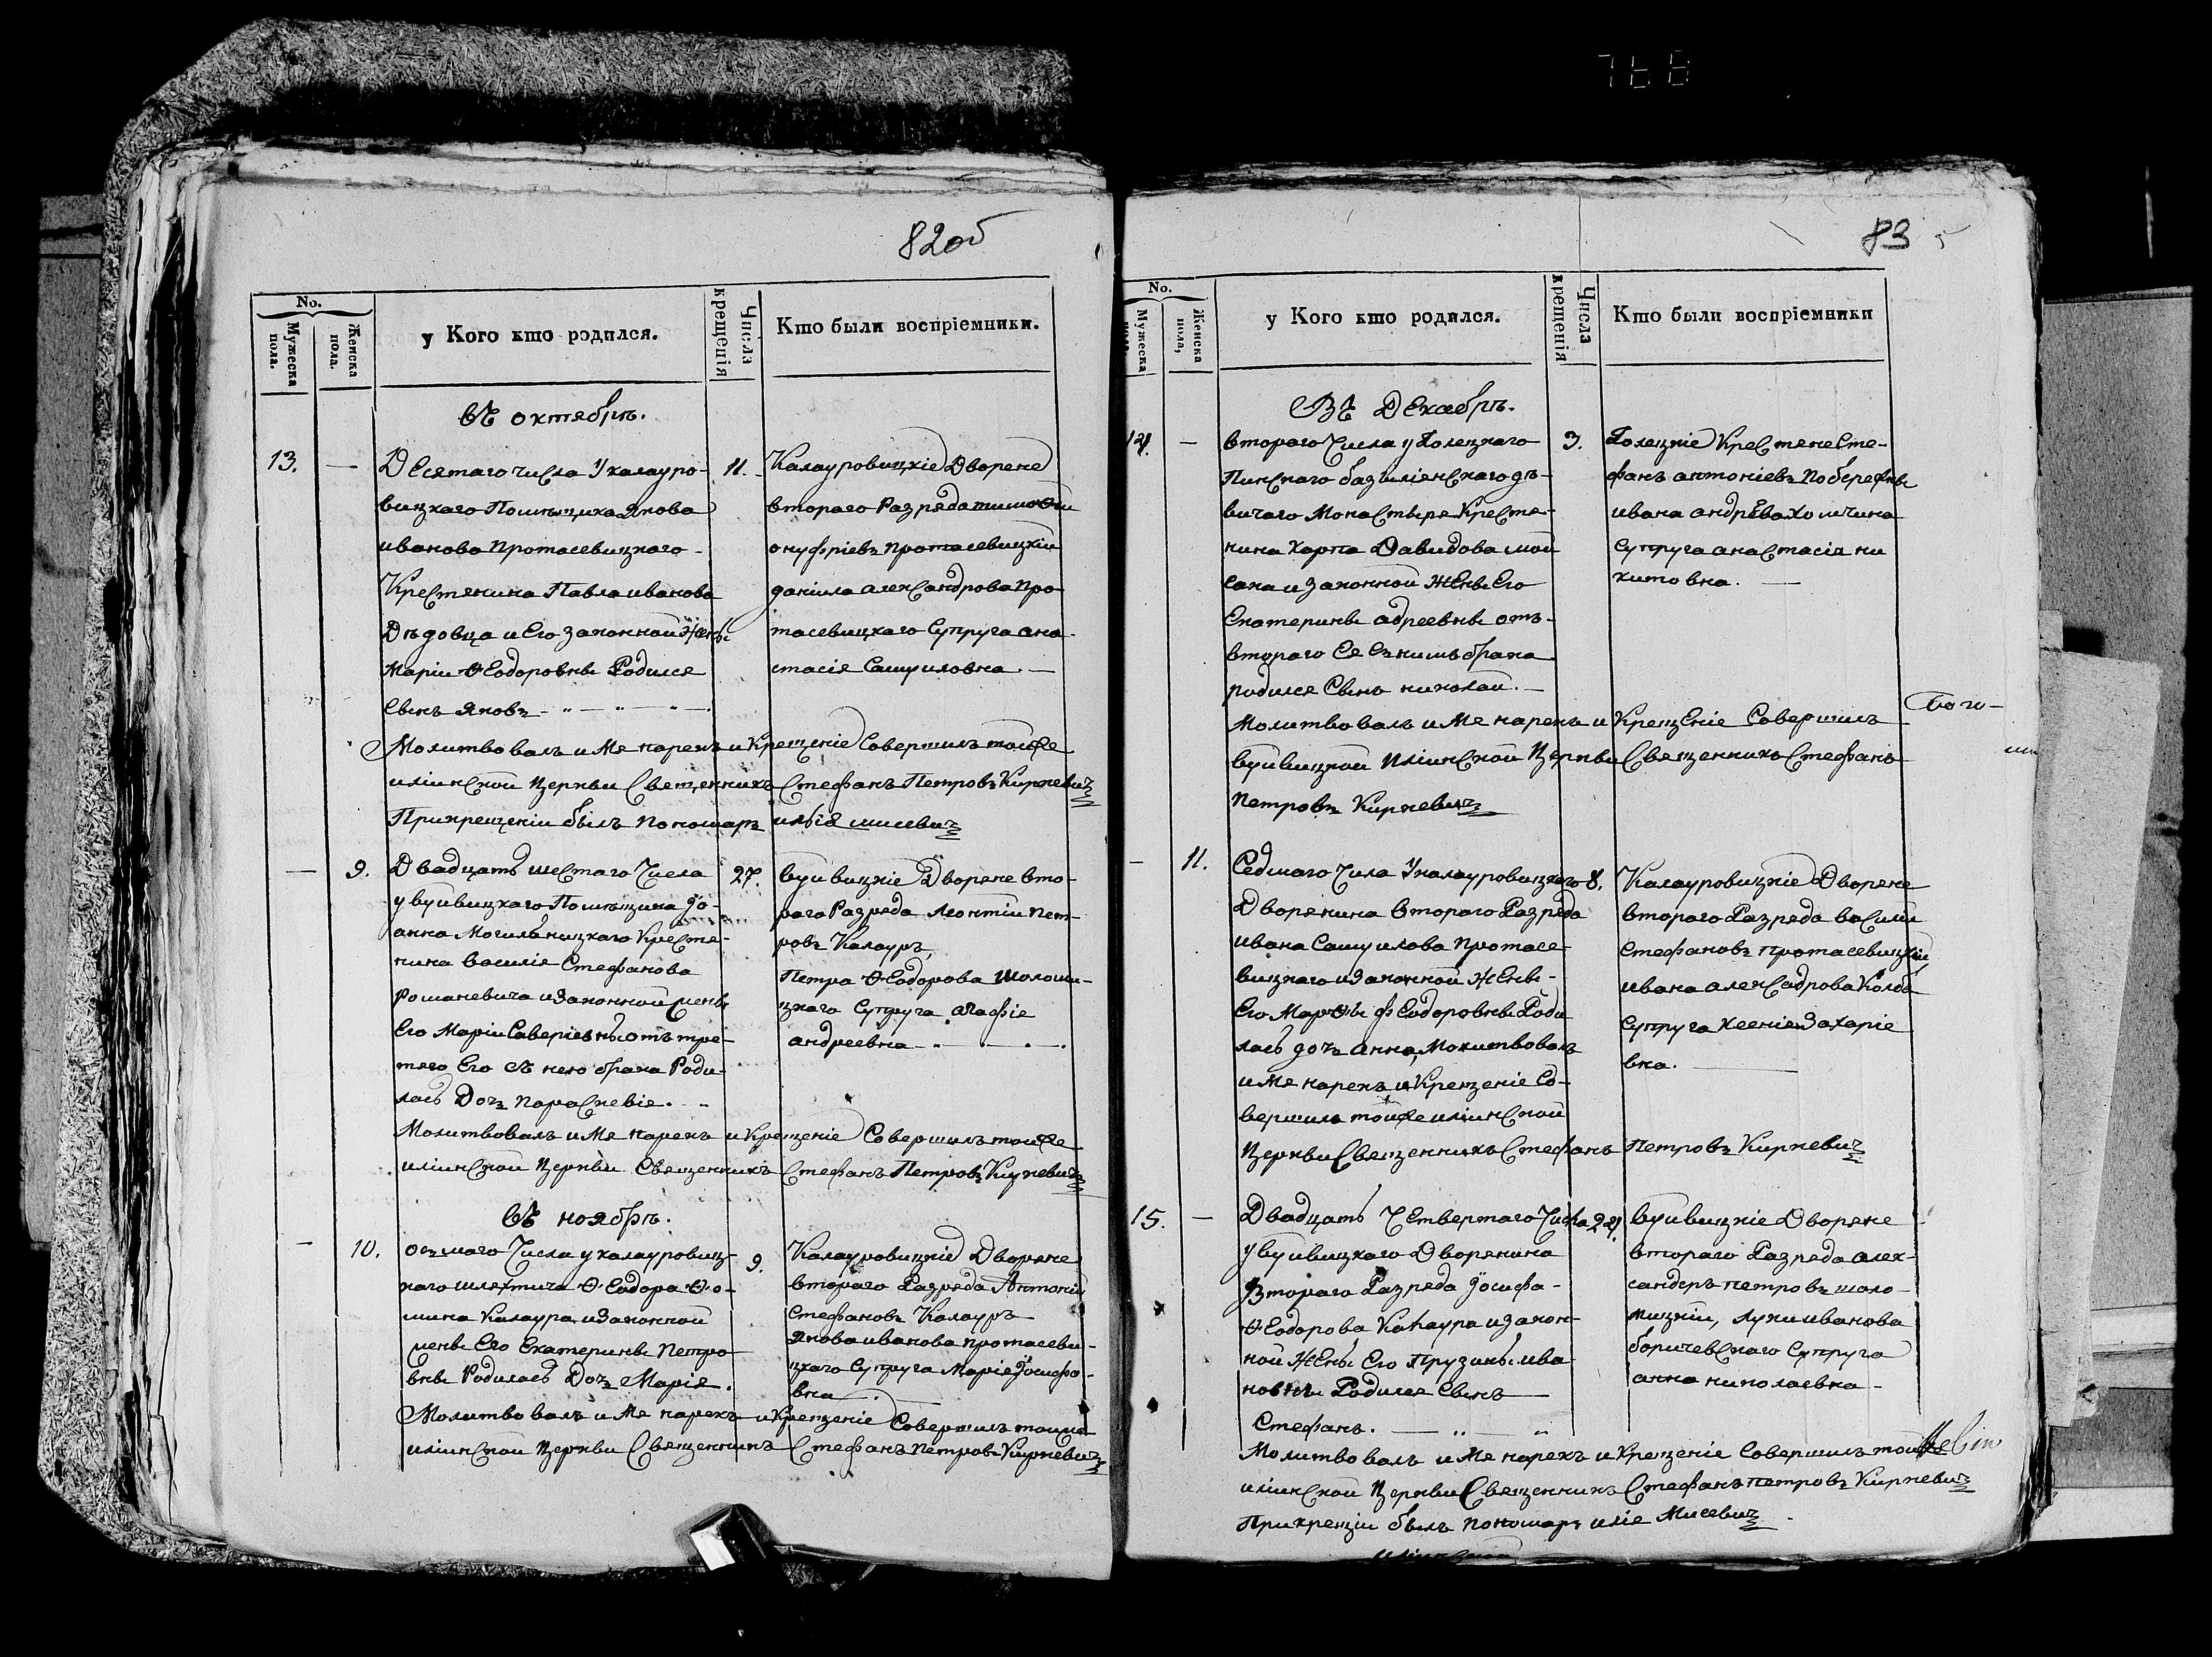 82об
No.
Мужеска пола.
Женска пола.
у Кого кто родился.
Числа крещенія
Кто были воспріемники.
въ октябрѣ.
13. — Десятаго числа у калауро-
вицкаго Помѣщика Якова
иванова Протасевицкаго
Крестянина Павла иванова
Дѣдовца и Его законной жены
Маріи Ѳеодоровны Родился
Сынъ Яковъ
11. Калауровицкіе Дворяне
втораго Разряда тимоѳій
онуфріевъ протасевицкій
даніила александрова Про-
тасевицкаго Супруга ана-
стасія Самуиловна. —
Молитвовалъ имя нарекъ и Крещеніе Совершилъ тойже
иліинской Церкви Священникъ Стефанъ Петровъ Киркевичъ
При крещеніи былъ пономарь илья мисевичъ
— 9. Двадцать шестаго Числа
у вуйвицкаго Помѣщика Іо-
анна Могильницкаго Крестя-
нина василія Стефанова
Романевича и законной жены
Его Маріи Саверіевны отъ тре-
тяго Его съ нею брака Роди-
лась Дочь параскевія.
27. вуйвицкіе Дворяне вто-
раго Разряда Леонтій пет-
ровъ Калауръ,
Петра Ѳеодорова Шоломи-
цкаго Супруга агафіе
андреевна
Молитвовалъ имя нарекъ и Крещеніе Совершилъ тойже
иліинской Церкви Священникъ Стефанъ Петровъ Киркевичъ
въ ноябрѣ.
— 10. осмаго Числа у калауровиц-
каго шляхтича Ѳеодора Ѳо-
мина Калаура и законной
жены Его Екатерины Петро-
вны Родилась Дочь Марія.
9. Калауровицкіе Дворяне
втораго Разряда Антоній
Стефановъ Калауръ
Якова иванова протасеви-
цкаго Супруга Марія Іосифо-
вна
Молитвовалъ имя нарекъ и Крещеніе Совершилъ тойже
иліинской Церкви Священникъ Стефанъ петровъ Киркевичъ
83
No.
Мужеска пола.
Женска пола,
у Кого кто родился.
Числа крещенія
Кто были воспріемники
Въ Декабрѣ.
14. — втораго Числа у Полецкаго
Пинскаго базиліянскаго дѣ-
вичаго Монастыря Крестя-
нина Карпа Давидова мой
сака и законной Жены Его
Екатерины адреевны отъ
втораго Ея съ нимъ брака
родился Сынъ николай. —
3. Полецкіе Крестяне Сте-
фанъ антоніевъ Побережны
ивана андрѣева Хомчина
Супруга анастасія ни
китовна. —
Молитвовалъ имя нарекъ и Крещеніе Совершилъ
вуйвицкой Иліинской Церкви Священникъ Стефанъ
Петровъ Киркевичъ
— 11. Седмаго Чила У калауровицкаго
Дворянина втораго Разряда
ивана Самуилова Протасе-
вицкаго и законной Жены
Его Марѳы Ѳеодоровны Роди
лась дочь анна, Молитвовалъ
имя нарекъ и Крещеніе Со-
вершилъ тойже иліинской
8. Калауровицкіе Дворяне
втораго Разряда василій
Стефановъ протасевицкій
ивана алексадрова Колба
Супруга ксенія Захаріе
вна.
Церкви Священникъ Стефанъ Петровъ Киркевичъ
15. — Двадцать Четвертаго Числа
у вуйвицкаго Дворянина
Втораго Разряда Іосифа
Ѳеодорова Калаура и закон-
ной Жены Его Прузины ива
новны Родился Сынъ
Стефанъ.
24. вуйвицкіе Дворяне
втораго Разряда алек-
сандеръ петровъ шоло-
мицкій, Луки иванова
боричевскаго Супруга
анна николаевна
Молитвовалъ имя нарекъ и Крещеніе Совершилъ тойже
иліинской Церкви Священникъ Стефанъ петровъ Киркевичъ
При крещіи былъ пономарь илія Мисевичъ